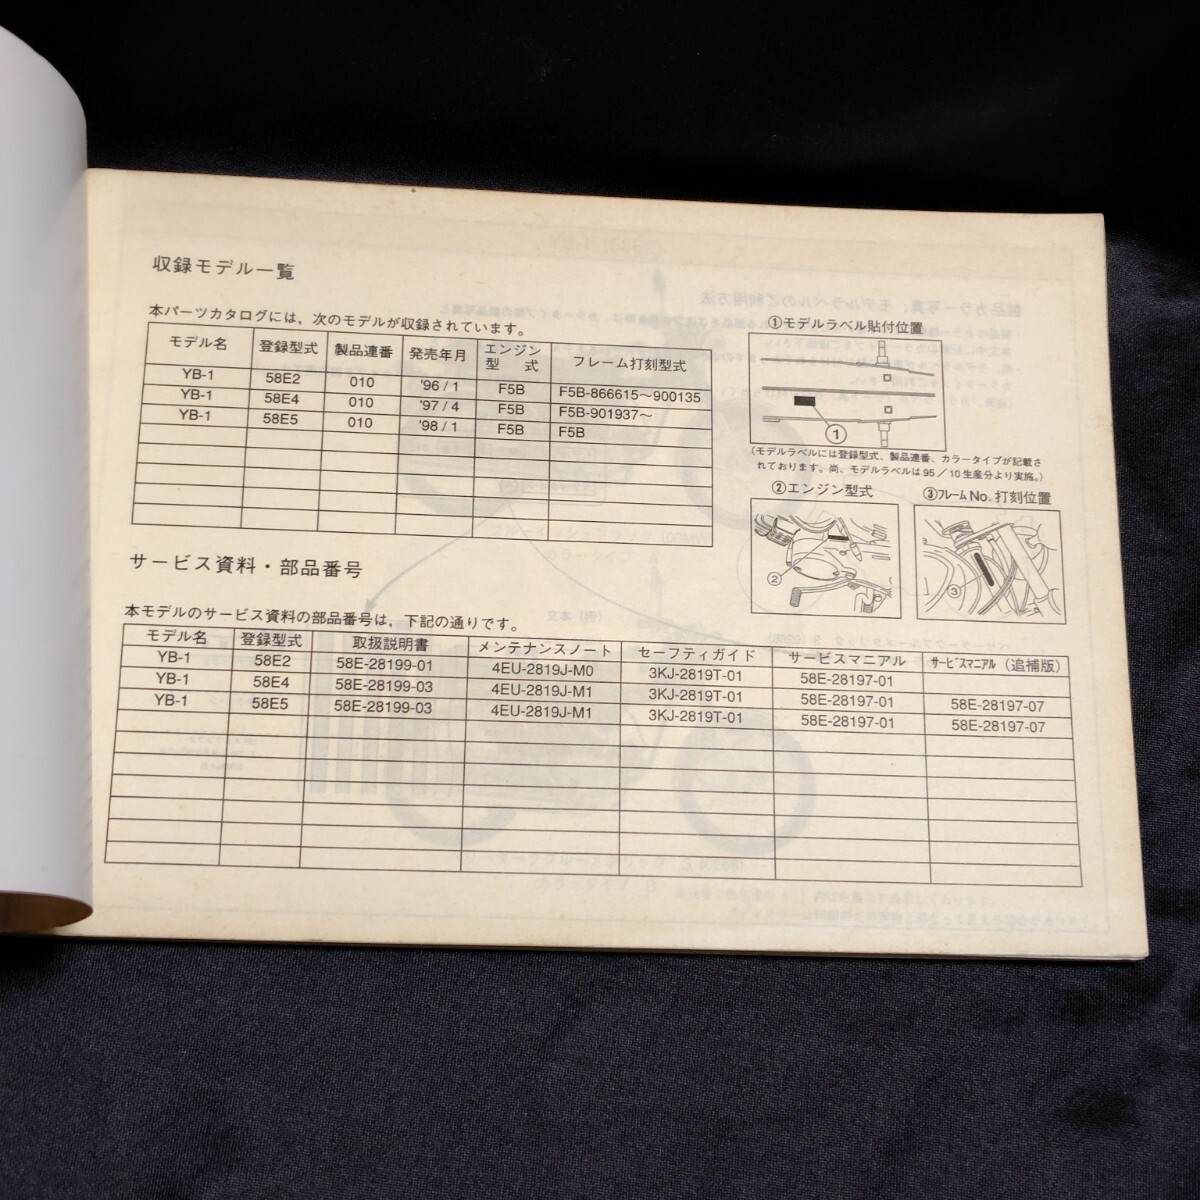 収録モデル一覧
本パーツカタログには，次のモデルが収録されています。
モデル名 登録型式 製品連番 発売年月 エンジン型式 フレーム打刻型式
YB-1 58E2 010 '96 / 1 F5B F5B-866615～900135
YB-1 58E4 010 '97 / 4 F5B F5B-901937～
YB-1 58E5 010 '98 / 1 F5B F5B
①モデルラベル貼付位置
①
(モデルラベルには登録型式、製品連番、カラータイプが記載さ
れております。尚、モデルラベルは95／10生産分より実施。)
②エンジン型式
②
③フレームNo. 打刻位置
③
サービス資料・部品番号
本モデルのサービス資料の部品番号は，下記の通りです。
モデル名 登録型式 取扱説明書 メンテナンスノート セーフティガイド サービスマニアル サービスマニアル（追補版）
YB-1 58E2 58E-28199-01 4EU-2819J-M0 3KJ-2819T-01 58E-28197-01
YB-1 58E4 58E-28199-03 4EU-2819J-M1 3KJ-2819T-01 58E-28197-01 58E-28197-07
YB-1 58E5 58E-28199-03 4EU-2819J-M1 3KJ-2819T-01 58E-28197-01 58E-28197-07